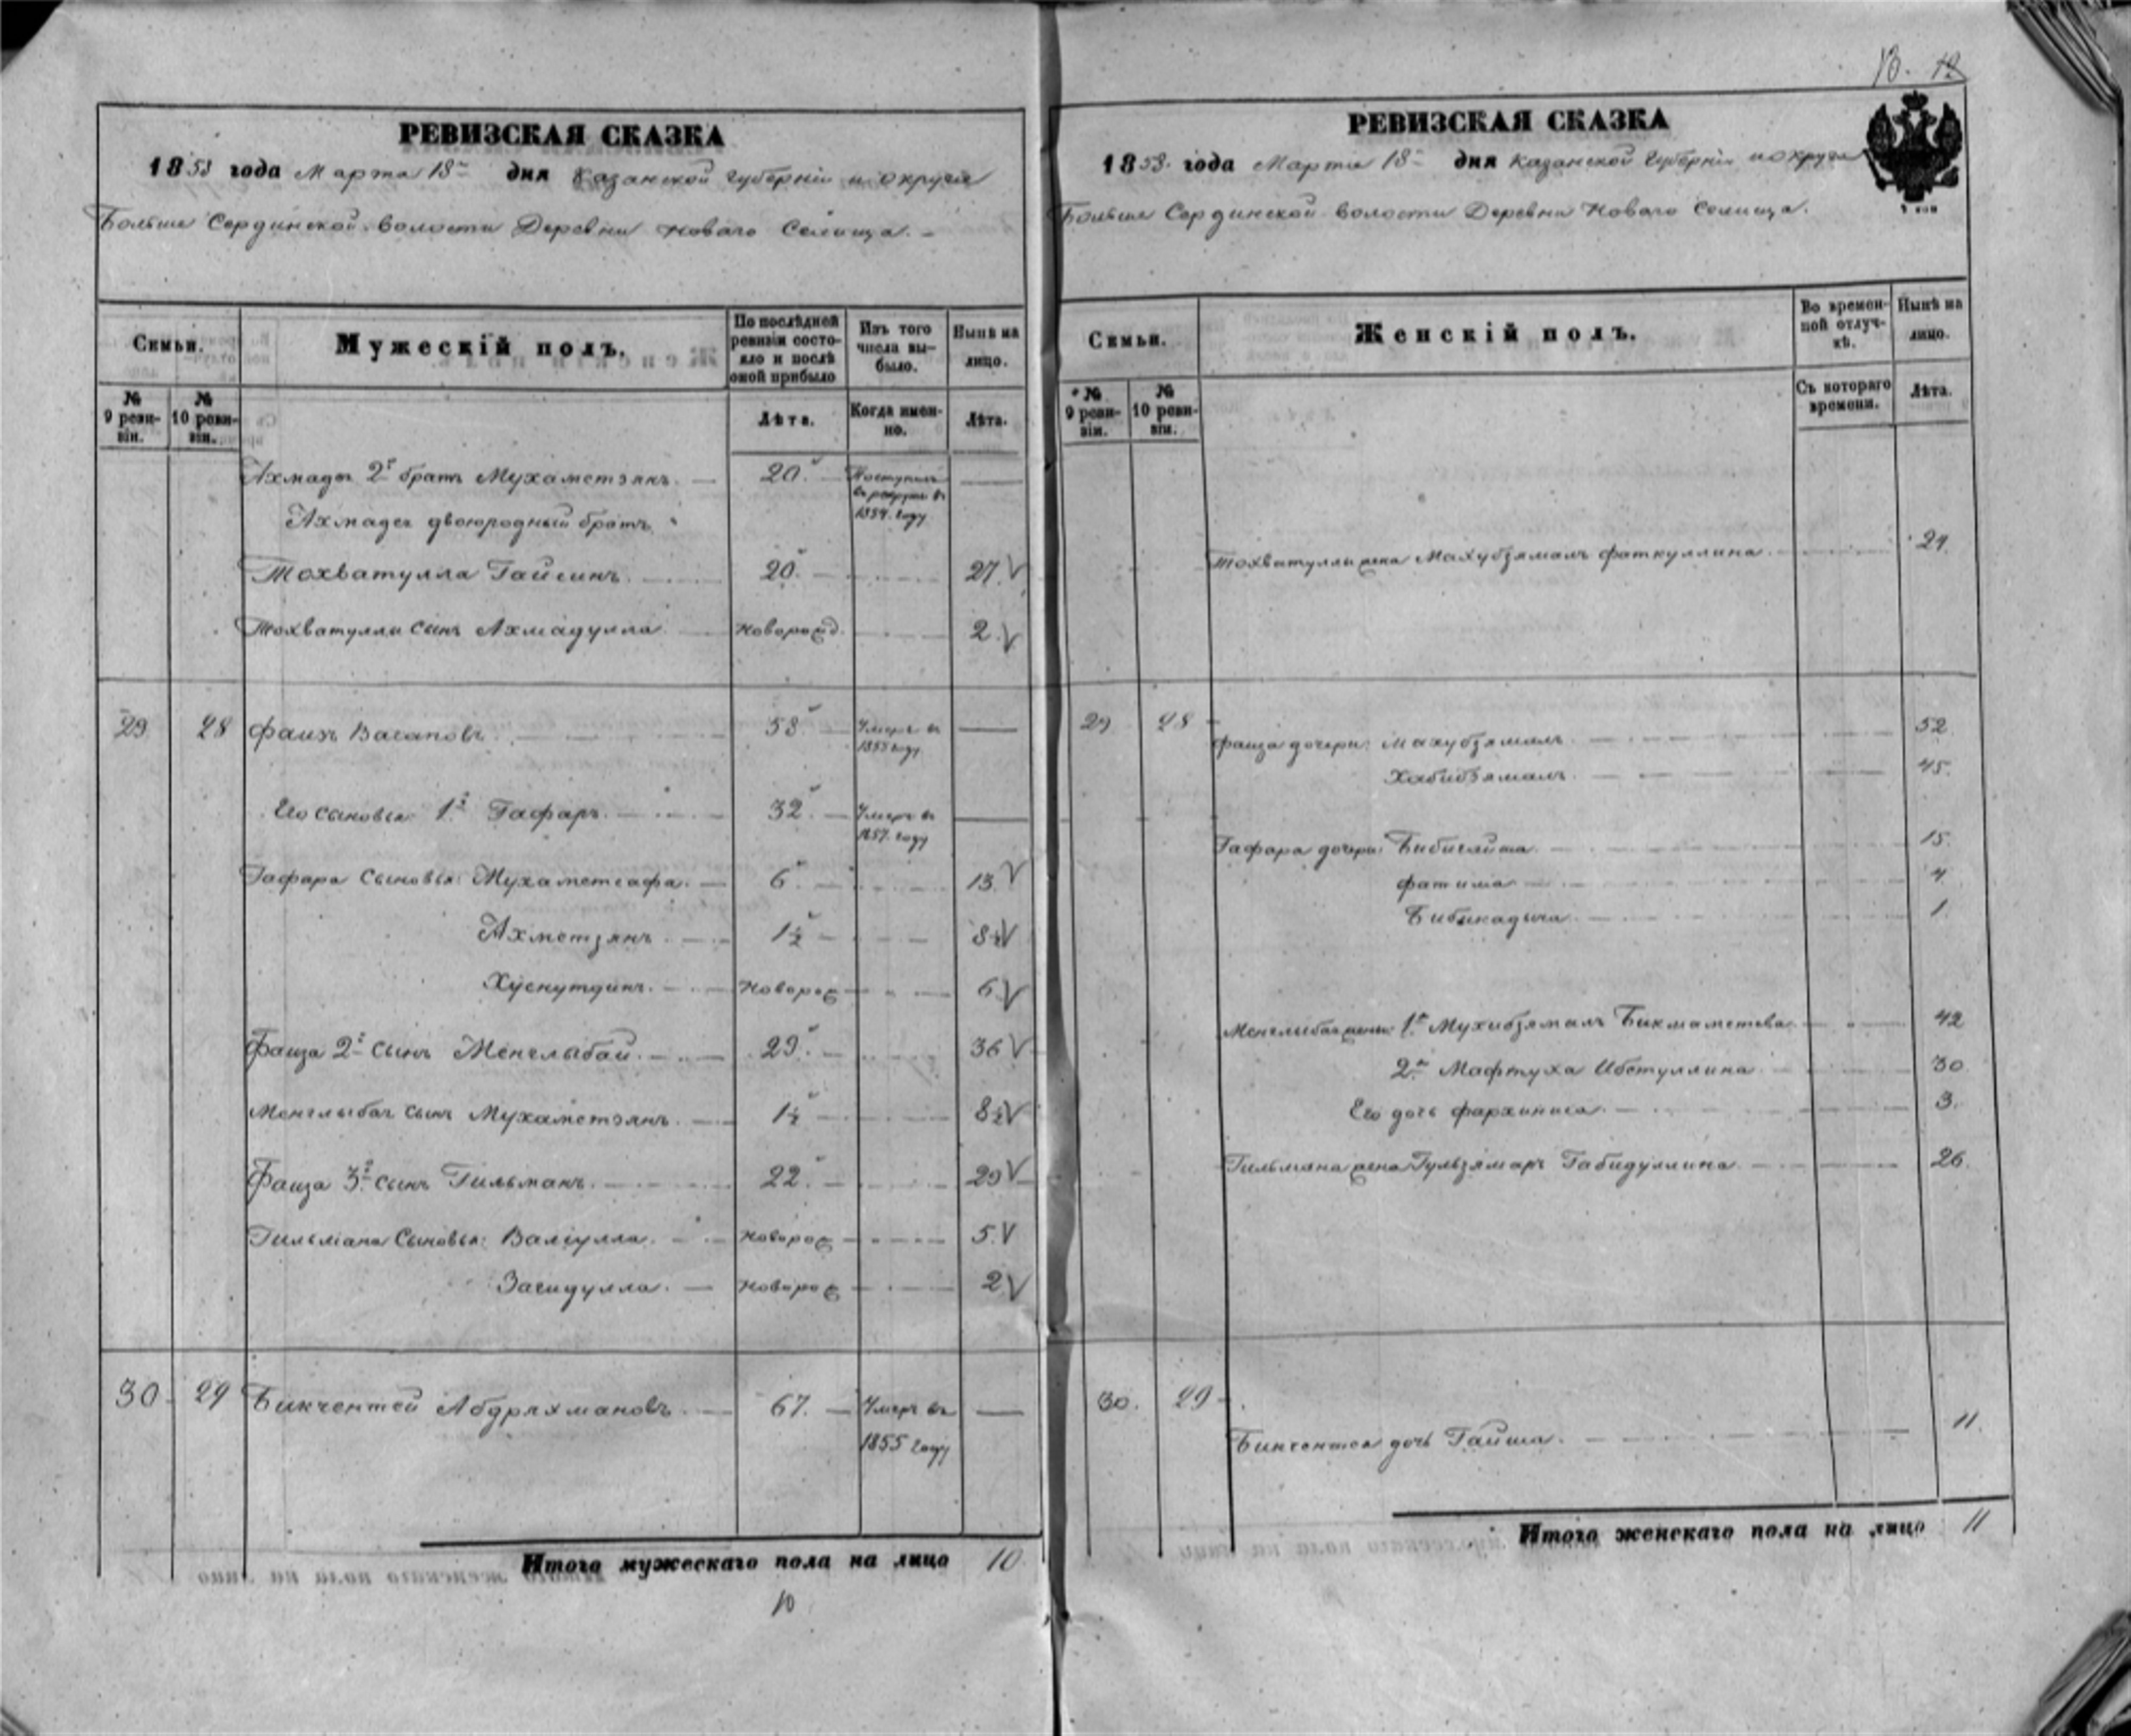 13. 12
РЕВИЗСКАЯ СКАЗКА
1858 года Марта 18го дня Казанской губерніи и округи
Больше Сердинской волости Деревни Новаго Селища.
Семьи.
Мужескій полъ.
По послѣдней ревизіи состояло и послѣ оной прибыло
Изъ того числа выбыло.
Нынѣ на лицо.
№ 9 ревизіи.
№ 10 ревизіи.
Лѣта.
Когда именно.
Лѣта.
Ахмадѣя 2й братъ Мухаметзянъ. 20. Поступилъ въ рекруты въ 1854. году
двоюродный братъ
Тохватулла Гайсинъ 20. 27. V
Тохватуллы сынъ Ахмадулла новорожд. 2. V
29 28 Фаизъ Вагаповъ. 58 Умеръ въ 1855 году
Его сыновья: 1й Гафаръ. 32. Умеръ въ 1857. году
Гафара сыновья: Мухаметсафа. 6. 13. V
Ахметзянъ 1½ 8½ V
Хуснутдинъ. новорож 6 V
Фаиза 2й сынъ Менглыбай. 29. 36 V
Менглыбая сынъ Мухаметзянъ. 1½ 8½ V
Фаиза 3й сынъ Гильманъ. 22. 29 V
Гильмана сыновья: Валіулла. новорож 5. V
Загидулла. новорож 2 V
30 29 Бикчентей Абдряхмановъ 67. Умеръ въ 1855 году
Итого мужескаго пола на лицо 10.
10
РЕВИЗСКАЯ СКАЗКА
1858. года Марта 18го дня Казанской губерніи и округи
Больше Сердинской волости Деревни Новаго Селища.
Семьи.
Женскій полъ.
Во временной отлучкѣ.
Нынѣ на лицо.
№ 9 ревизіи.
№ 10 ревизіи.
Съ котораго времени.
Лѣта.
Тохватуллы жена Махубзямалъ Фаткуллина 24.
29 28
Фаиза дочери: Махубзямалъ 52
Хабибзямалъ 45.
Гафара дочери: Бибигайша 15.
Фатима 4
1.
Менглыбая жены: 1я Мухибзямалъ Бикмаметева 42
2я Мафтуха 30
Его дочь Фархиниса. 3.
Гильмана жена Габидуллина 26.
30. 29
Бикчентея дочь Гайша. 11.
Итого женскаго пола на лицо 11